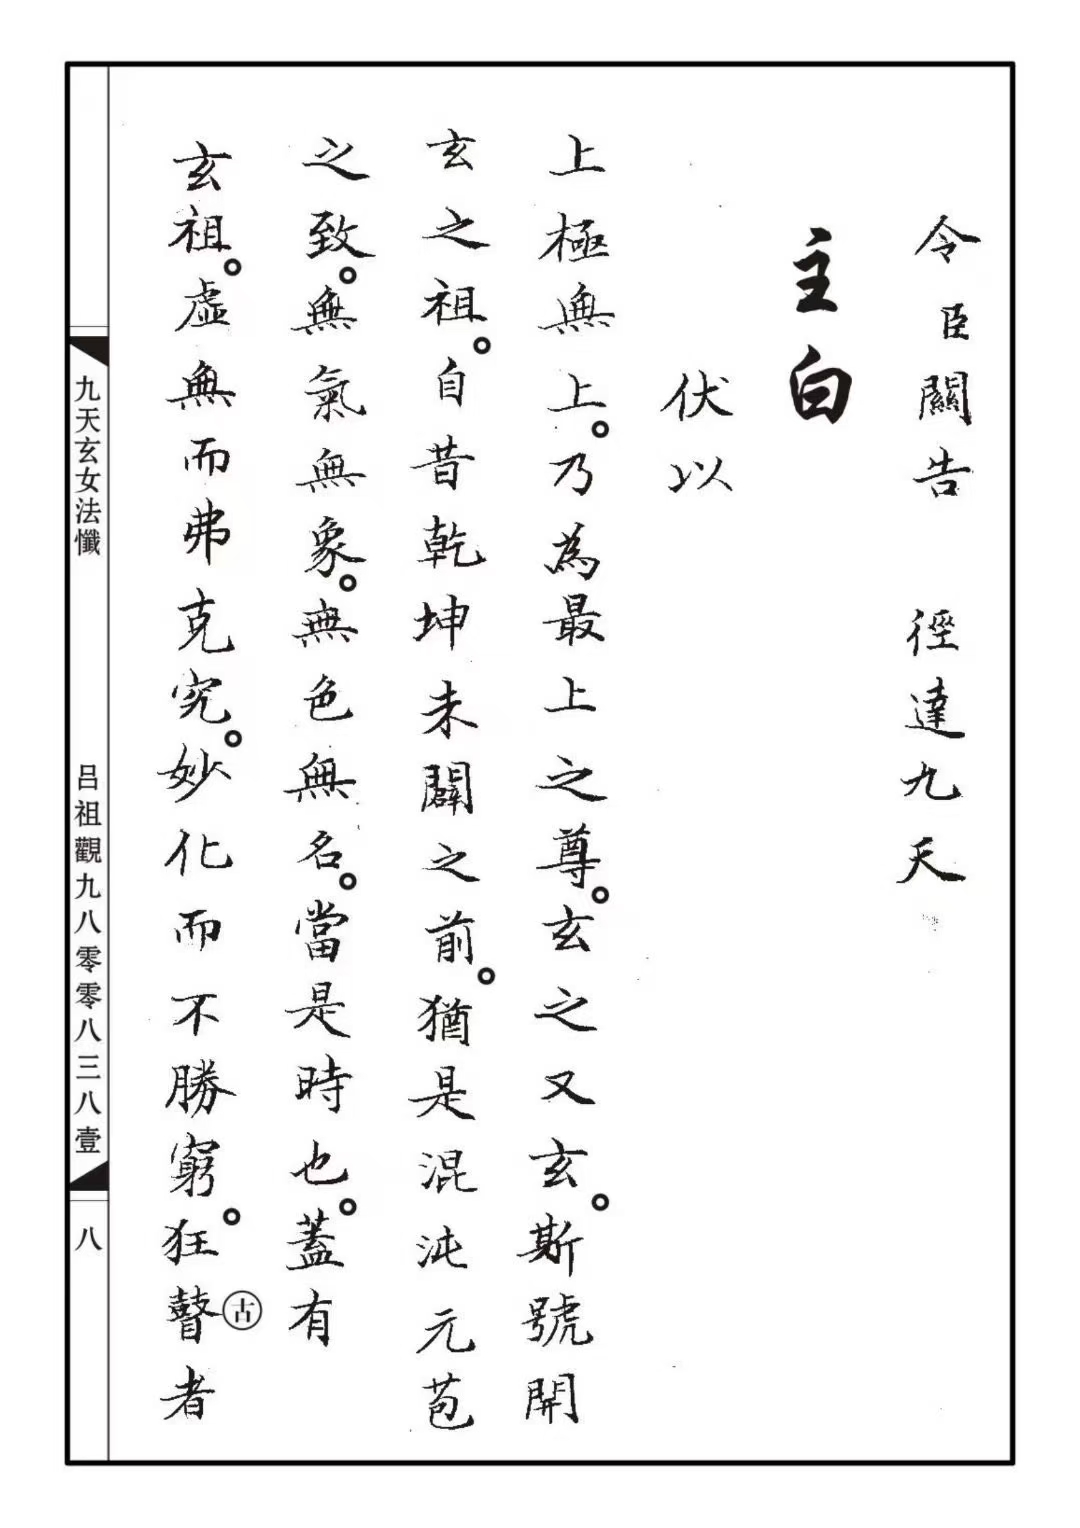 令臣關告　徑達九天
主白
伏以
上極無上。乃為最上之尊。玄之又玄。斯號開
玄之祖。自昔乾坤未闢之前。猶是混沌元苞
之致。無氣無象。無色無名。當是時也。蓋有
玄祖。虛無而弗克究。妙化而不勝窮。狂瞽者
古
九天玄女法懺
呂祖觀九八零零八三八壹
八